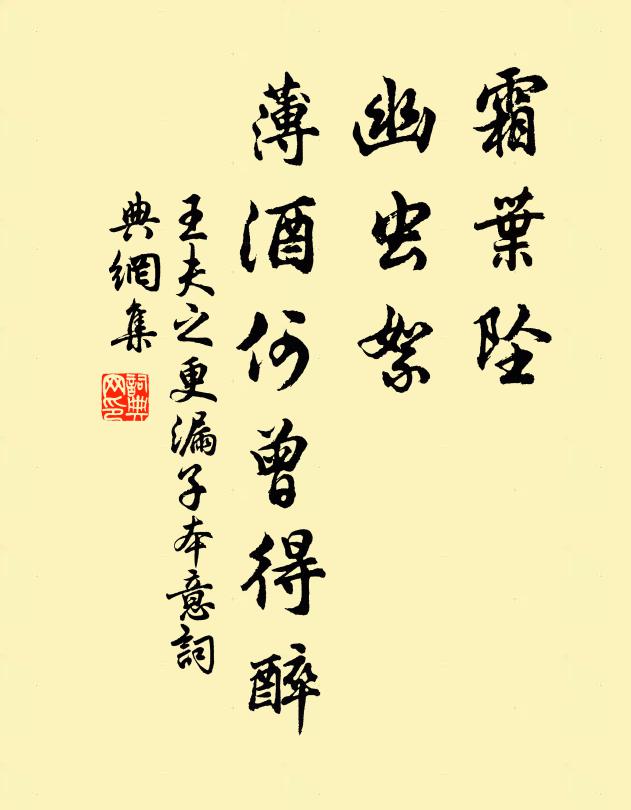 霜葉坠
幽虫絮
薄酒何曾得醉
王夫之更漏子本意詞
典網集
詞典网印